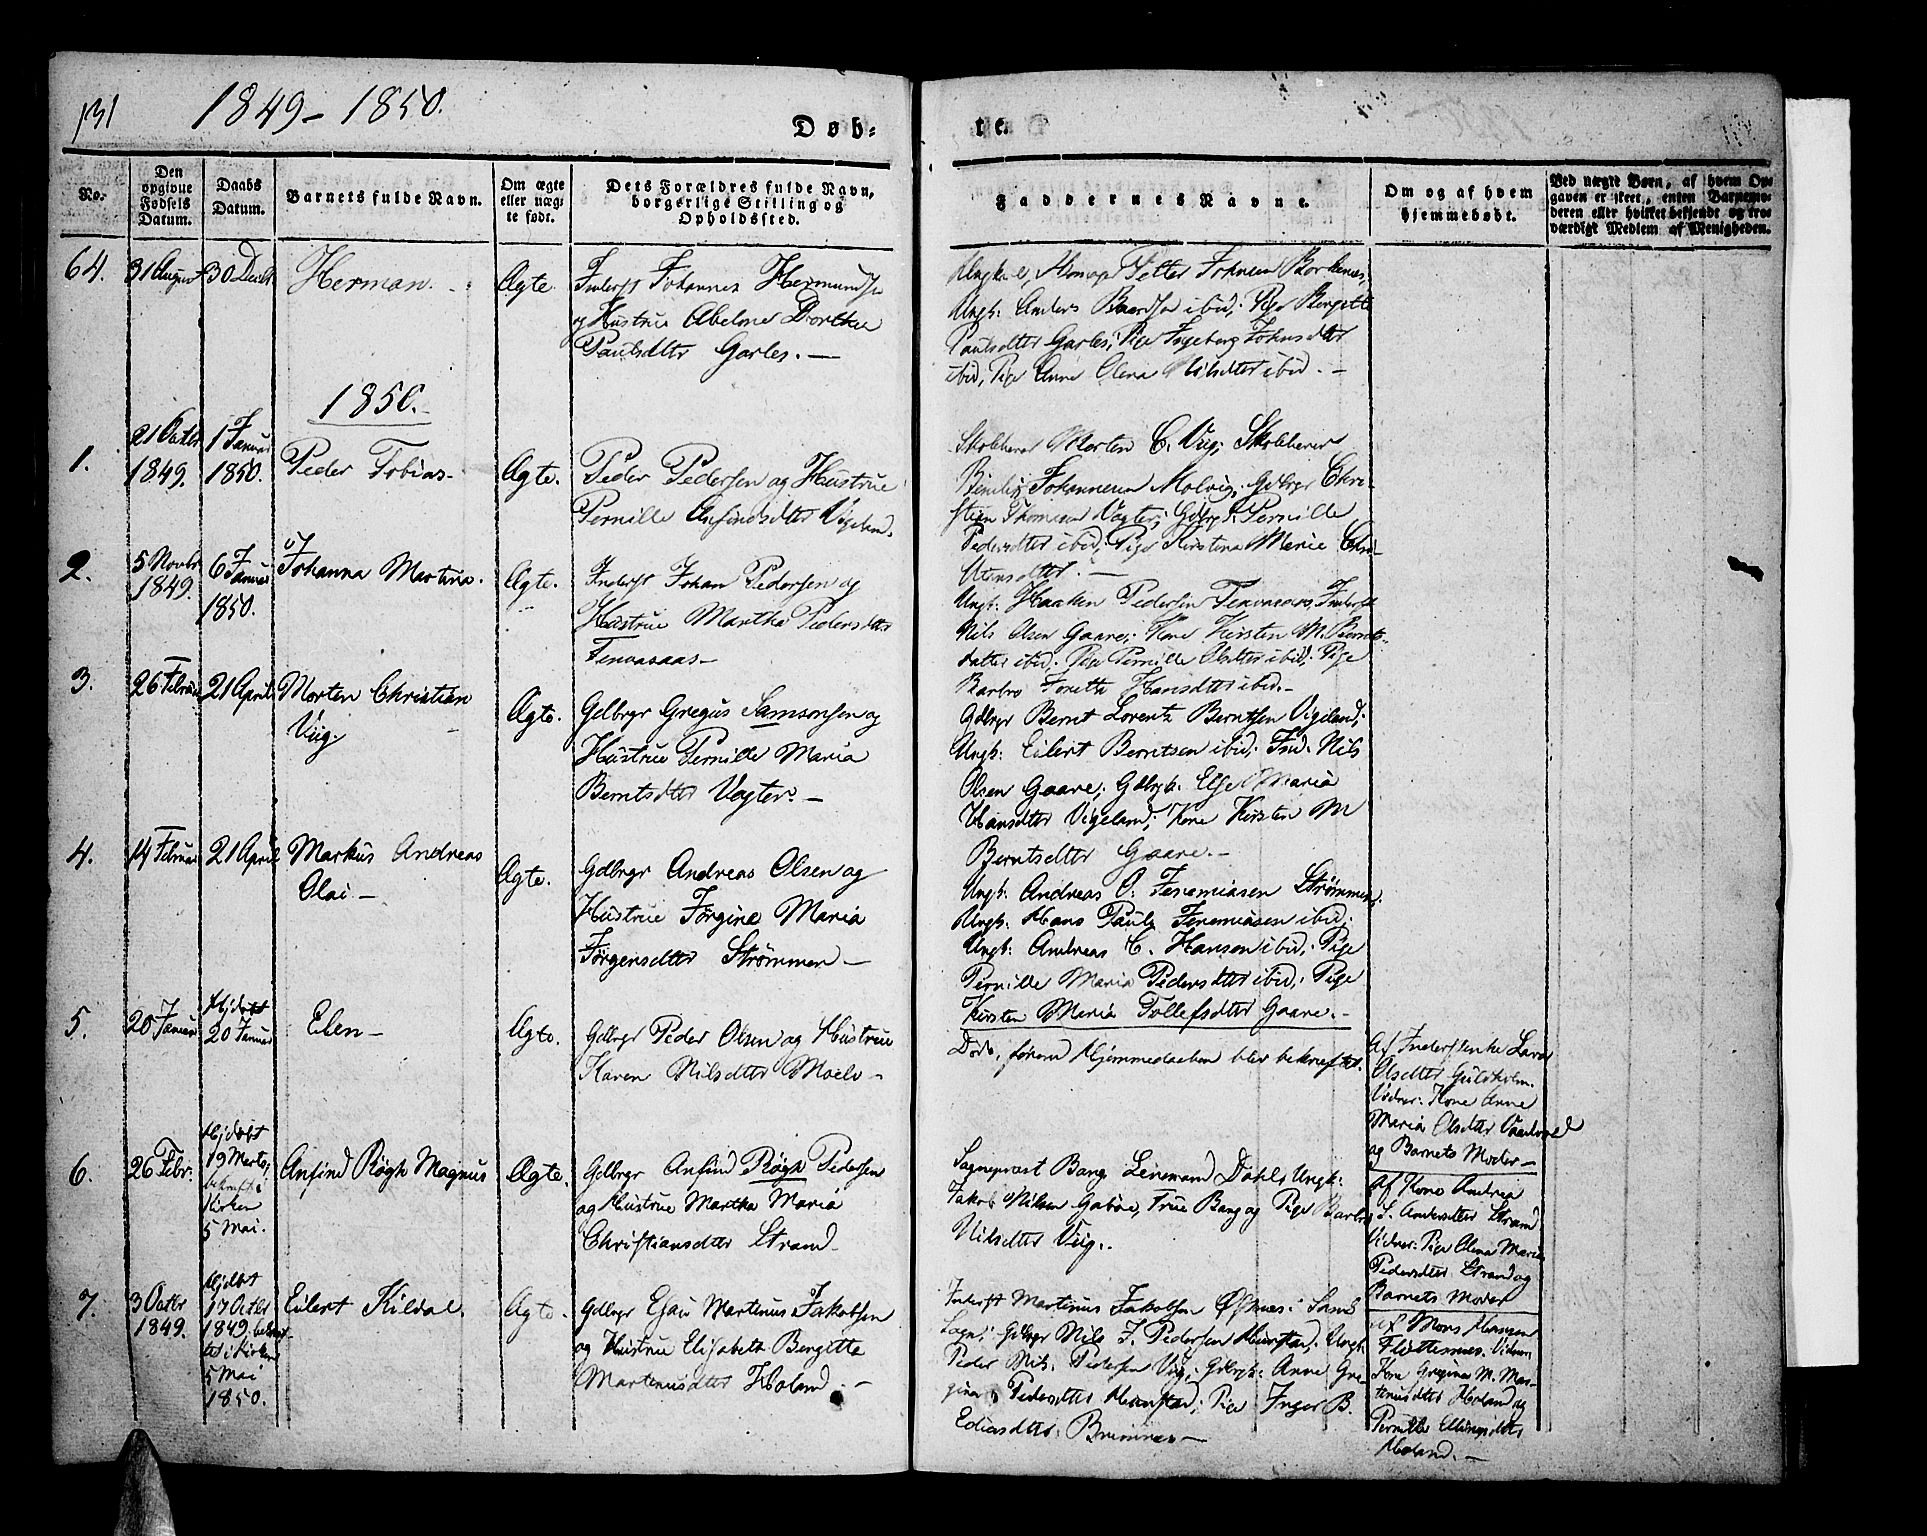 131
1849 - 1850.
Døb-
te
No.
Den opgivne Fødsels Datum.
Daabs Datum.
Barnets fulde Navn.
Om ægte eller uægte født.
Dets Forældres fulde Navn, borgerlige Stilling og Opholdssted.
Faddernes Navne.
Om og af hvem hjemmedøbt.
Ved uægte Børn, af hvem Opgaven er skeet, enten Barnemoderen eller hvilket bekjendt og troværdigt Medlem af Menigheden.
64.
31 August
30 Decbr
Herman.
Ægte.
Inderst Johannes Hermundsen
og Hustrue Abelone Dorthea
Paulsdtter Garles. —
Johnsen Borkenes,
Ungk: Anders Baardsen ibid; Pige Bergitte
Paulsdtter Garles; Pige Ingeborg Johnsdtter
ibid, Pige Anne Olena Nilsdtter ibid. —
1850.
1.
21 Octbr
1849.
1 Januar
1850.
Peder Tobias.
Ægte.
Peder Pedersen og Hustrue
Pernille Anfindsdtter Vigeland.
Skoleherer Morten C. Viig; Skoleherer
Johannesen Molvig; Gdbrgr Chri-
stian Thomesen Vagter; Gdbrgk: Pernille
Pedersdtter ibid; Pige Kirstina Marie Chri-
stensdtter. —
2.
5 Novbr
1849.
6 Januar
1850.
Johanna Martina.
Ægte.
Inderst Johan Pedersen og
Hustrue Martha Pedersdtter
Tenvasaas—
Ungk: Haaken Pedersen Tenvasaas, Inderst
Nils Olsen Gaare; Kone Kirsten M. Bernts-
datter ibid; Pige Pernille Olsdtter ibid; Pige
Barbro Joretha Hansdtter ibid. —
3.
26 Februar
21 April
Morten Christian
Viig.
Ægte.
Gdbrgr Gregus Samsonsen og
Hustrue Pernille Maria
Berntsdtter Vagter. —
Gdbrgr Bernt Lorentz Berntsen Vigeland;
Ungk: Eilert Berntsen ibid; Ind: Nils
Olsen Gaare; Gdbrgk: Else Maria
Hansdtter Vigeland; Kone Kirsten M
Berntsdtter Gaare. —
4.
14 Februar
21 April
Markus Andreas
Olai —
Ægte.
Gdbrgr Andreas Olsen og
Hustrue Jørgine Maria
Jørgensdtter Strømmen —
Ungk: Andreas O. Jeremiasen Strømmen;
Ungk: Hans Pauls Jeremiasen ibid;
Ungk: Andreas C. Hansen ibid; Pige
Pernille Maria Pedersdtter ibid; Pige
Kirsten Maria Tollefsdtter Gaare. —
5.
20 Januar
Hjdøbt
20 Januar
Elen —
Ægte.
Gdbrgr Peder Olsen og Hustrue
Karen Nilsdtter Moelv —
Død, førend Hjemmedaaben blev bekræftet.
Af Inderstenke
Olsdtter Guldholm.
Vidner: Kone Anne
Maria Olsdtter
og Barnets Moder —
6.
26 Febr.
Hjdøbt
19 Marts,
bekræft i
Kirken
5 Mai.
Anfind Røgh Magnus
Ægte.
Gdbrgr Anfind Røgh Pedersen
og Hustrue Martha Maria
Christiansdtter Strand.
Sognepræst Bang Lensmand Dahl, Ungk:
Jakob Nilsen Gaböe, Frue Bang og Pige Barbro
Nilsdtter Viig.
Af Kone Andrea
S. Andersdtter Strand
Vidner: Pige Olena Maria
Pedersdtter Strand og
Barnets Moder
7.
3 Octbr
1849.
Hjdøbt
17 Octbr
1849, bekræf-
tet i Kirken
5 Mai
1850.
Eilert Kildal.
Ægte.
Gdbrgr Esau Martinus Jakobsen
og Hustrue Elisabeth Bergitta
Martinusdtter Holand. —
Inderst Martinus Jakobsen Øksnes;
Gdbrgr Nils J. Pedersen Haustad; Ungk:
Peder Nils. Pedersen Viig; Gdbrgk: Anne Gre-
gina Pedersdtter Haustad; Pige Inger B.
Ediasdtter Breivnes —
af Mons Monsen
Flottennes. Vidner:
Kone Gregina M. Mar-
tinusdtter Holand og
Pernille Ellingsdtter
Holand. —